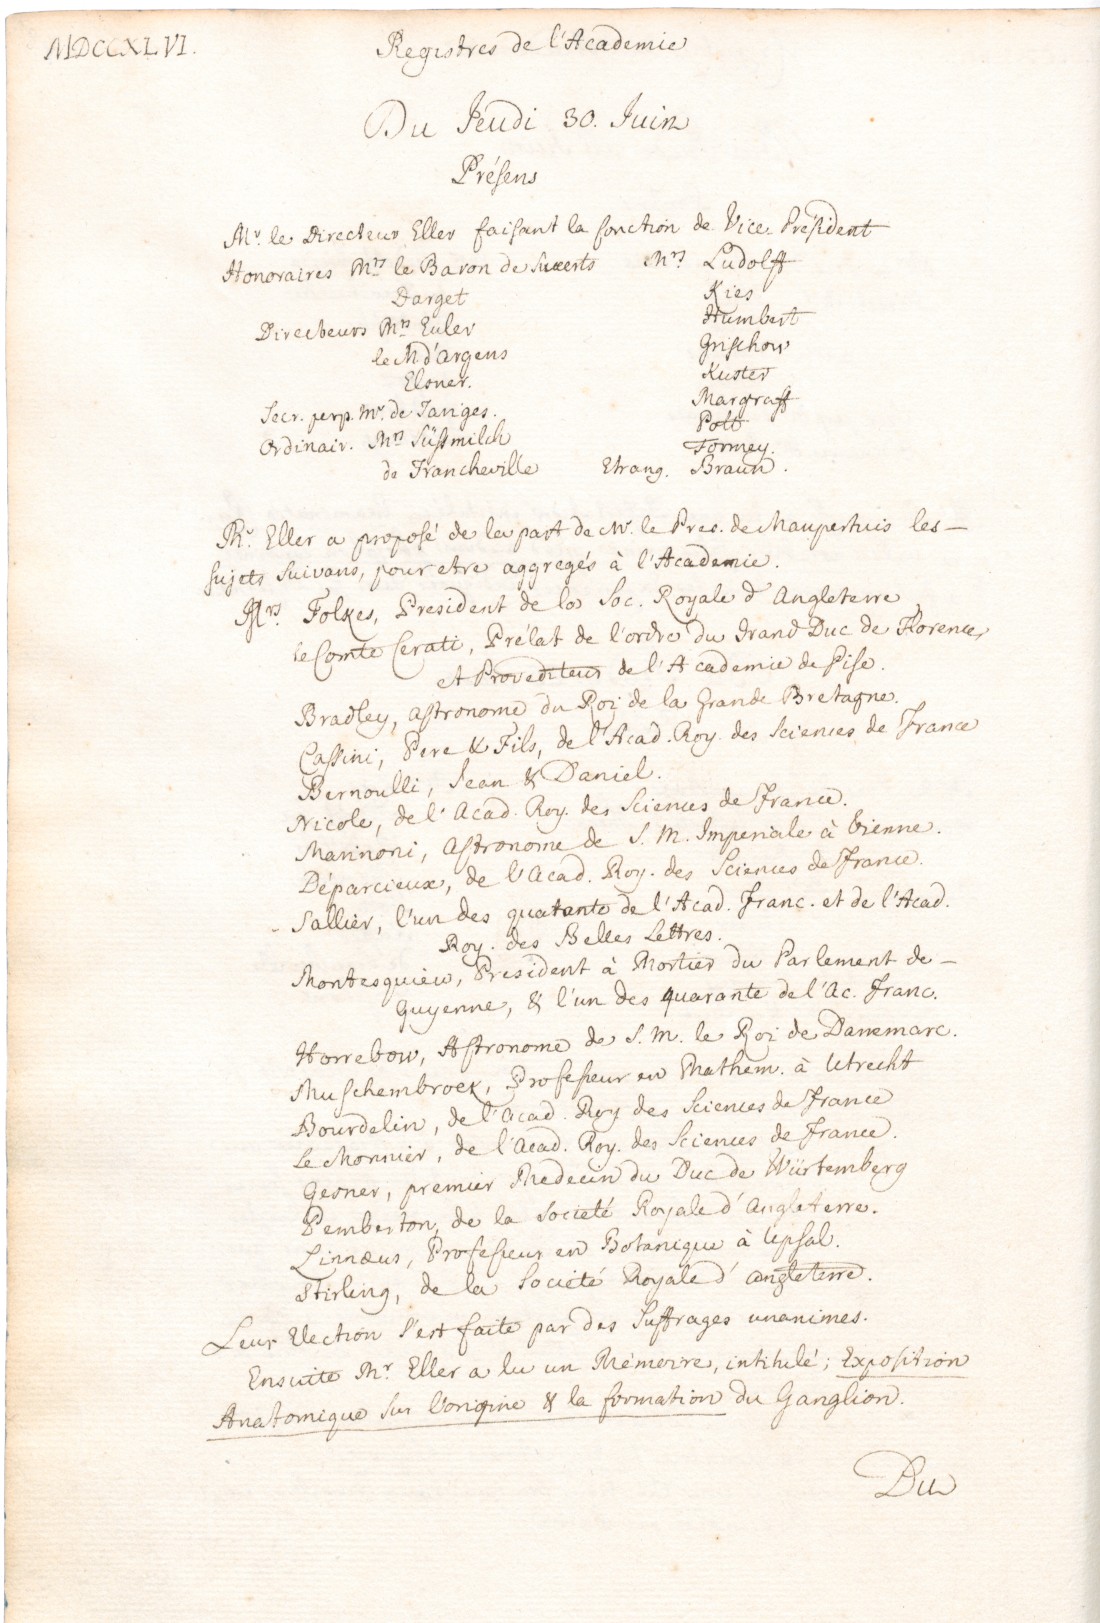 MDCCXLVI.
Registres de l'Academie
Du Jeudi 30. Juin
Présens
Mr. le Directeur Eller faisant la fonction de Vice Président
Honoraires Mrs le Baron de Sweerts Mrs Ludolff
Darget Kies
Humbert
Directeurs Mrs Euler Grischow
le M d'Argens Kuster
Elsner. Margraff
Secr. perp. Mr. de Jariges. Pott
Ordinair. Mrs Süssmilch Formey.
de Francheville Etrang. Braun.
Mr. Eller a proposé de la part de Mr. le Pres. de Maupertuis les
sujets suivans, pour etre aggregés à l'Academie.
Mrs. Folkes, President de la Soc. Royale d'Angleterre
le Comte Cerati, Prélat de l'ordre du Grand Duc de Florence,
et Provediteur de l'Academie de Pise.
Bradley, astronome du Roi de la Grande Bretagne.
Cassini, Pere & Fils, de l'Acad. Roy. des Sciences de France
Bernoulli, Jean & Daniel.
Nicole, de l'Acad. Roy. des Sciences de France.
Marinoni, Astronome de S. M. Imperiale à Vienne.
Déparcieux, de l'Acad. Roy. des Sciences de France.
Sallier, l'un des quatante de l'Acad. Franc. et de l'Acad.
Roy. des Belles Lettres.
Montesquieu, President à Mortier du Parlement de
Guyenne, & l'un des quarante de l'Ac. Franc.
Horrebow, Astronome de S. M. le Roi de Danemarc.
Muschembroek, Professeur en Mathem. à Utrecht
Bourdelin, de l'Acad. Roy des Sciences de France
Le Monnier, de l'Acad. Roy. des Sciences de France.
Gesner, premier Medecin du Duc de Würtemberg
Pemberton, de la Societé Royale d'Angleterre.
Linnæus, Professeur en Botanique à Upsal.
Stirling, de la Societé Royale d'Angleterre.
Leur Election s'est faite par des Suffrages unanimes.
Ensuite Mr Eller a lu un Mémoire, intitulé; Exposition
Anatomique sur l'origine & la formation du Ganglion.
Du